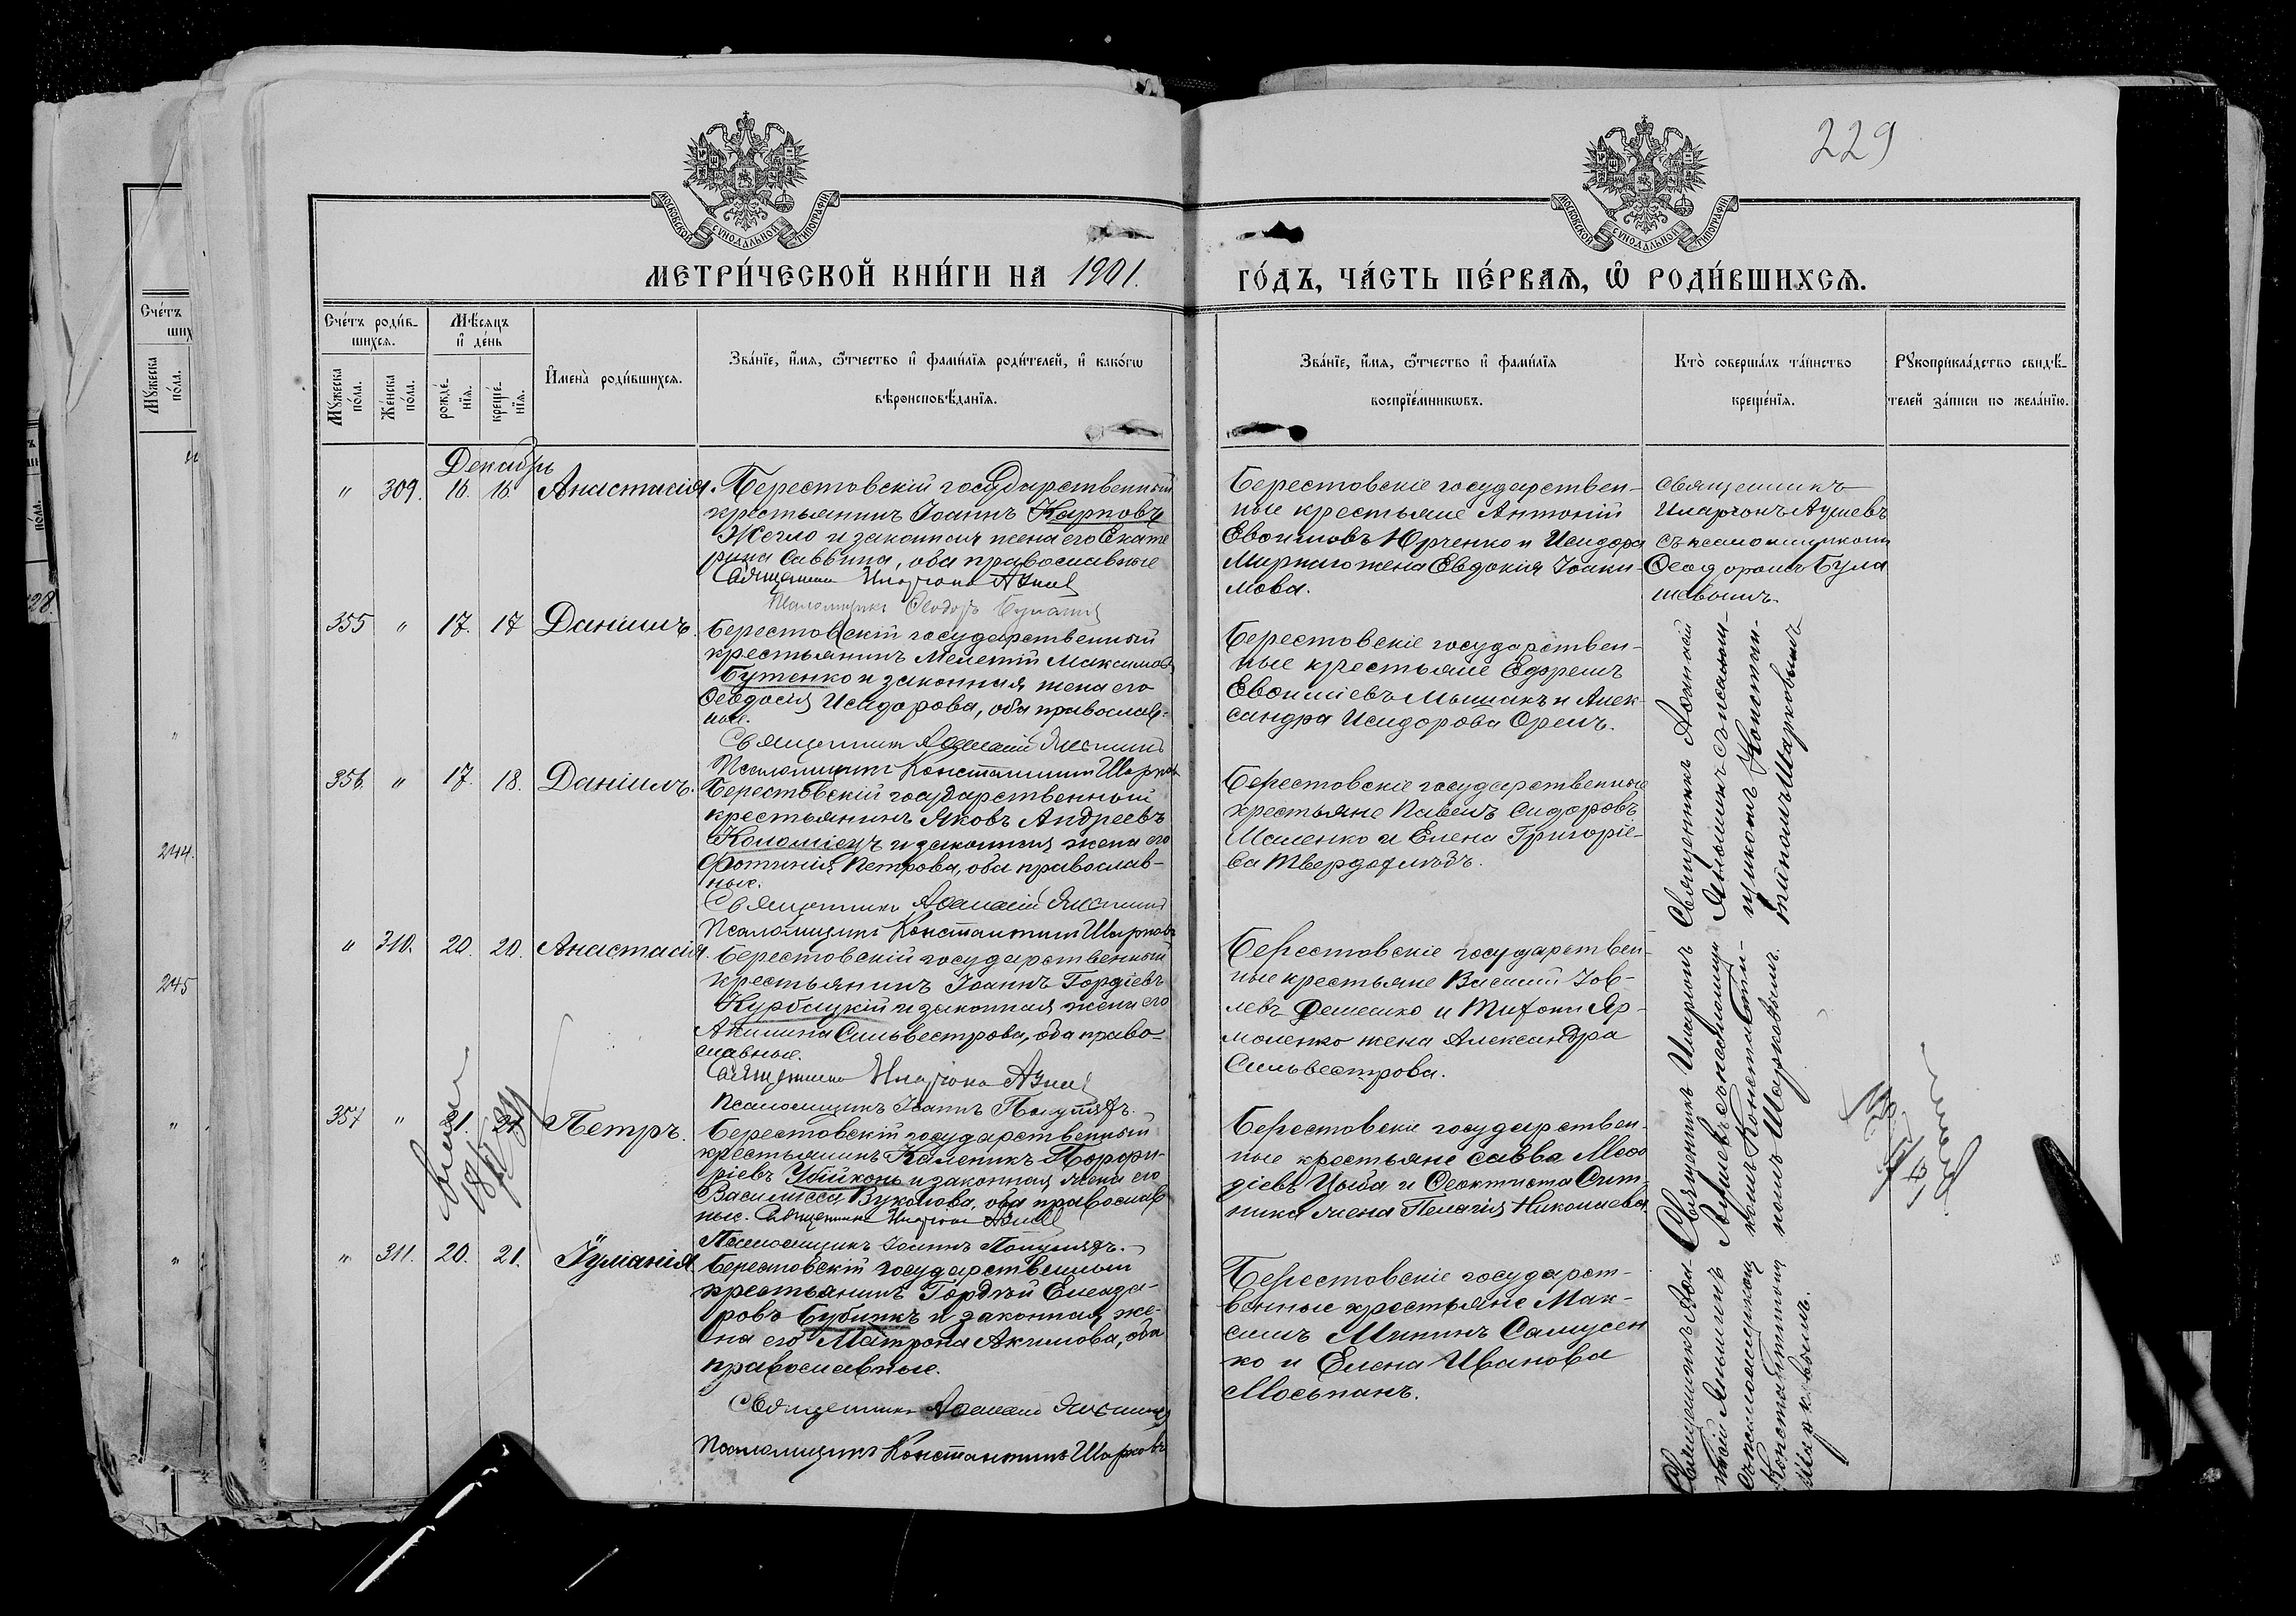 229
МОСКОВСКОЙ СѴНОДАЛЬНОЙ ТИПОГРАФІИ
МОСКОВСКОЙ СѴНОДАЛЬНОЙ ТИПОГРАФІИ
МЕТРИ́ЧЕСКОЙ КНИ́ГИ НА 1901.
ГО́ДЪ, ЧА́СТЬ ПЕ́РВАЯ, Ѽ РОДИ́ВШИХСЯ.
Сче́тъ роди́в-
шихся.
Мꙋжеска по́ла.
Же́нска по́ла.
Мѣ́сяцъ
и де́нь
рожде́-
нїя.
креще́-
нїя.
Имена̀ роди́вшихся.
Зва́нїе, и́мя, ѻ́тчество и фами́лїя роди́телей, и како́гѡ
вѣроисповѣ́данїя.
Зва́нїе, и́мя, ѻ́тчество и фами́лїя
воспрїе́мникѡвъ.
Кто̀ соверша́лъ та́инство
креще́нїя.
Рꙋкоприкла́дство свидѣ́-
телей за́писи по жела́нїю.
Декабрь
" 309. 16. 16. Анастасія.
Берестовскій государственный
крестьянинъ Іоаннъ Карповъ
Жегло и законная жена его Екате
рина Саввина, оба православные
Священникъ Иларіонъ
Псаломщикъ Ѳеодоръ
Берестовскіе государствен-
ные крестьяне Антоній
Евѳимовъ Юрченко и Исидора
жена Евдокія Іоаки-
мова.
Священникъ
Иларіонъ
съ псаломщикомъ
Ѳеодоромъ Була
шевымъ.
355 " 17. 17 Даніилъ.
Берестовскій государственный
крестьянинъ Мелетій Максимовъ
Бутенко и законная жена его
Ѳеодосія Исидорова, оба православ-
ные.
Священникъ Аѳанасій
Псаломщикъ Константинъ Шарковъ
Берестовскіе государствен-
ные крестьяне Ефремъ
Евѳиміевъ и Алек-
сандра Исидорова Орелъ.
356. " 17. 18. Даніилъ.
Берестовскій государственный
крестьянинъ Яковъ Андреевъ
Коломіецъ и законная жена его
Фотинія Петрова, оба православ-
ные.
Священникъ Аѳанасій
Псаломщикъ Константинъ Шарковъ
Берестовскіе государственные
крестьяне Павелъ Сидоровъ
и Елена Григоріе-
ва Твердохлѣбъ.
" 310. 20. 20. Анастасія.
Берестовскій государственный
крестьянинъ Іоаннъ Гордіевъ
Курбацкій и законная жена его
Акилина Сильвестрова, оба право-
славные.
Священникъ Иларіонъ
Псаломщикъ Іоаннъ
Берестовскіе государствен-
ные крестьяне Василій Іов-
левъ и Тихона Яр-
моленко жена Александра
Сильвестрова.
357 " 21. 21. Петръ.
Берестовскій государственный
крестьянинъ Каленикъ Порфи-
ріевъ Убійконь и законная жена его
Василисса Вуколова, оба православ
ные. Священникъ Иларіонъ
Псаломщикъ Іоаннъ
Берестовскіе государствен-
ные крестьяне Савва Меѳо
діевъ Цыба и Ѳеоктиста
жена Пелагія Николаева.
" 311. 20. 21. Іуліанія.
Берестовскій государственный
крестьянинъ Гордѣй Елеаза-
ровъ Бубликъ и законная же-
на его Матрона Акимова, оба
православные.
Священникъ Аѳанасій
Псаломщикъ Константинъ Шарковъ
Берестовскіе государст-
венные крестьяне Мак-
симъ Мининъ Самусен
ко и Елена Иванова
Мосьпанъ.
Священникъ Аѳанасій
съ псалом-
щикомъ Констан-
тиномъ Шарковымъ
Священникъ Иларіонъ
съ псаломщи
комъ Константи-
номъ Шарковымъ.
Священникъ Аѳа-
насій
съ псаломщикомъ
Константиномъ
Шарковымъ.
244.
245